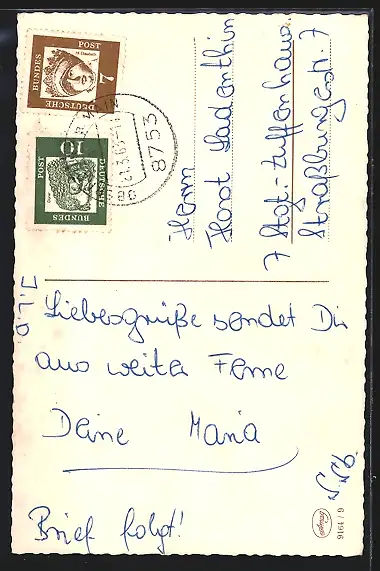 DEUTSCHE
BUNDES
POST
7
DEUTSCHE
BUNDES
POST
10
8753
Herrn
Horst Ladenthin
7 Stgt.-Zuffenhaus.
Straßburgerstr. 7
Liebesgrüße sendet Dir
aus weiter Ferne
Deine Maria
Brief folgt!
9164 / 6